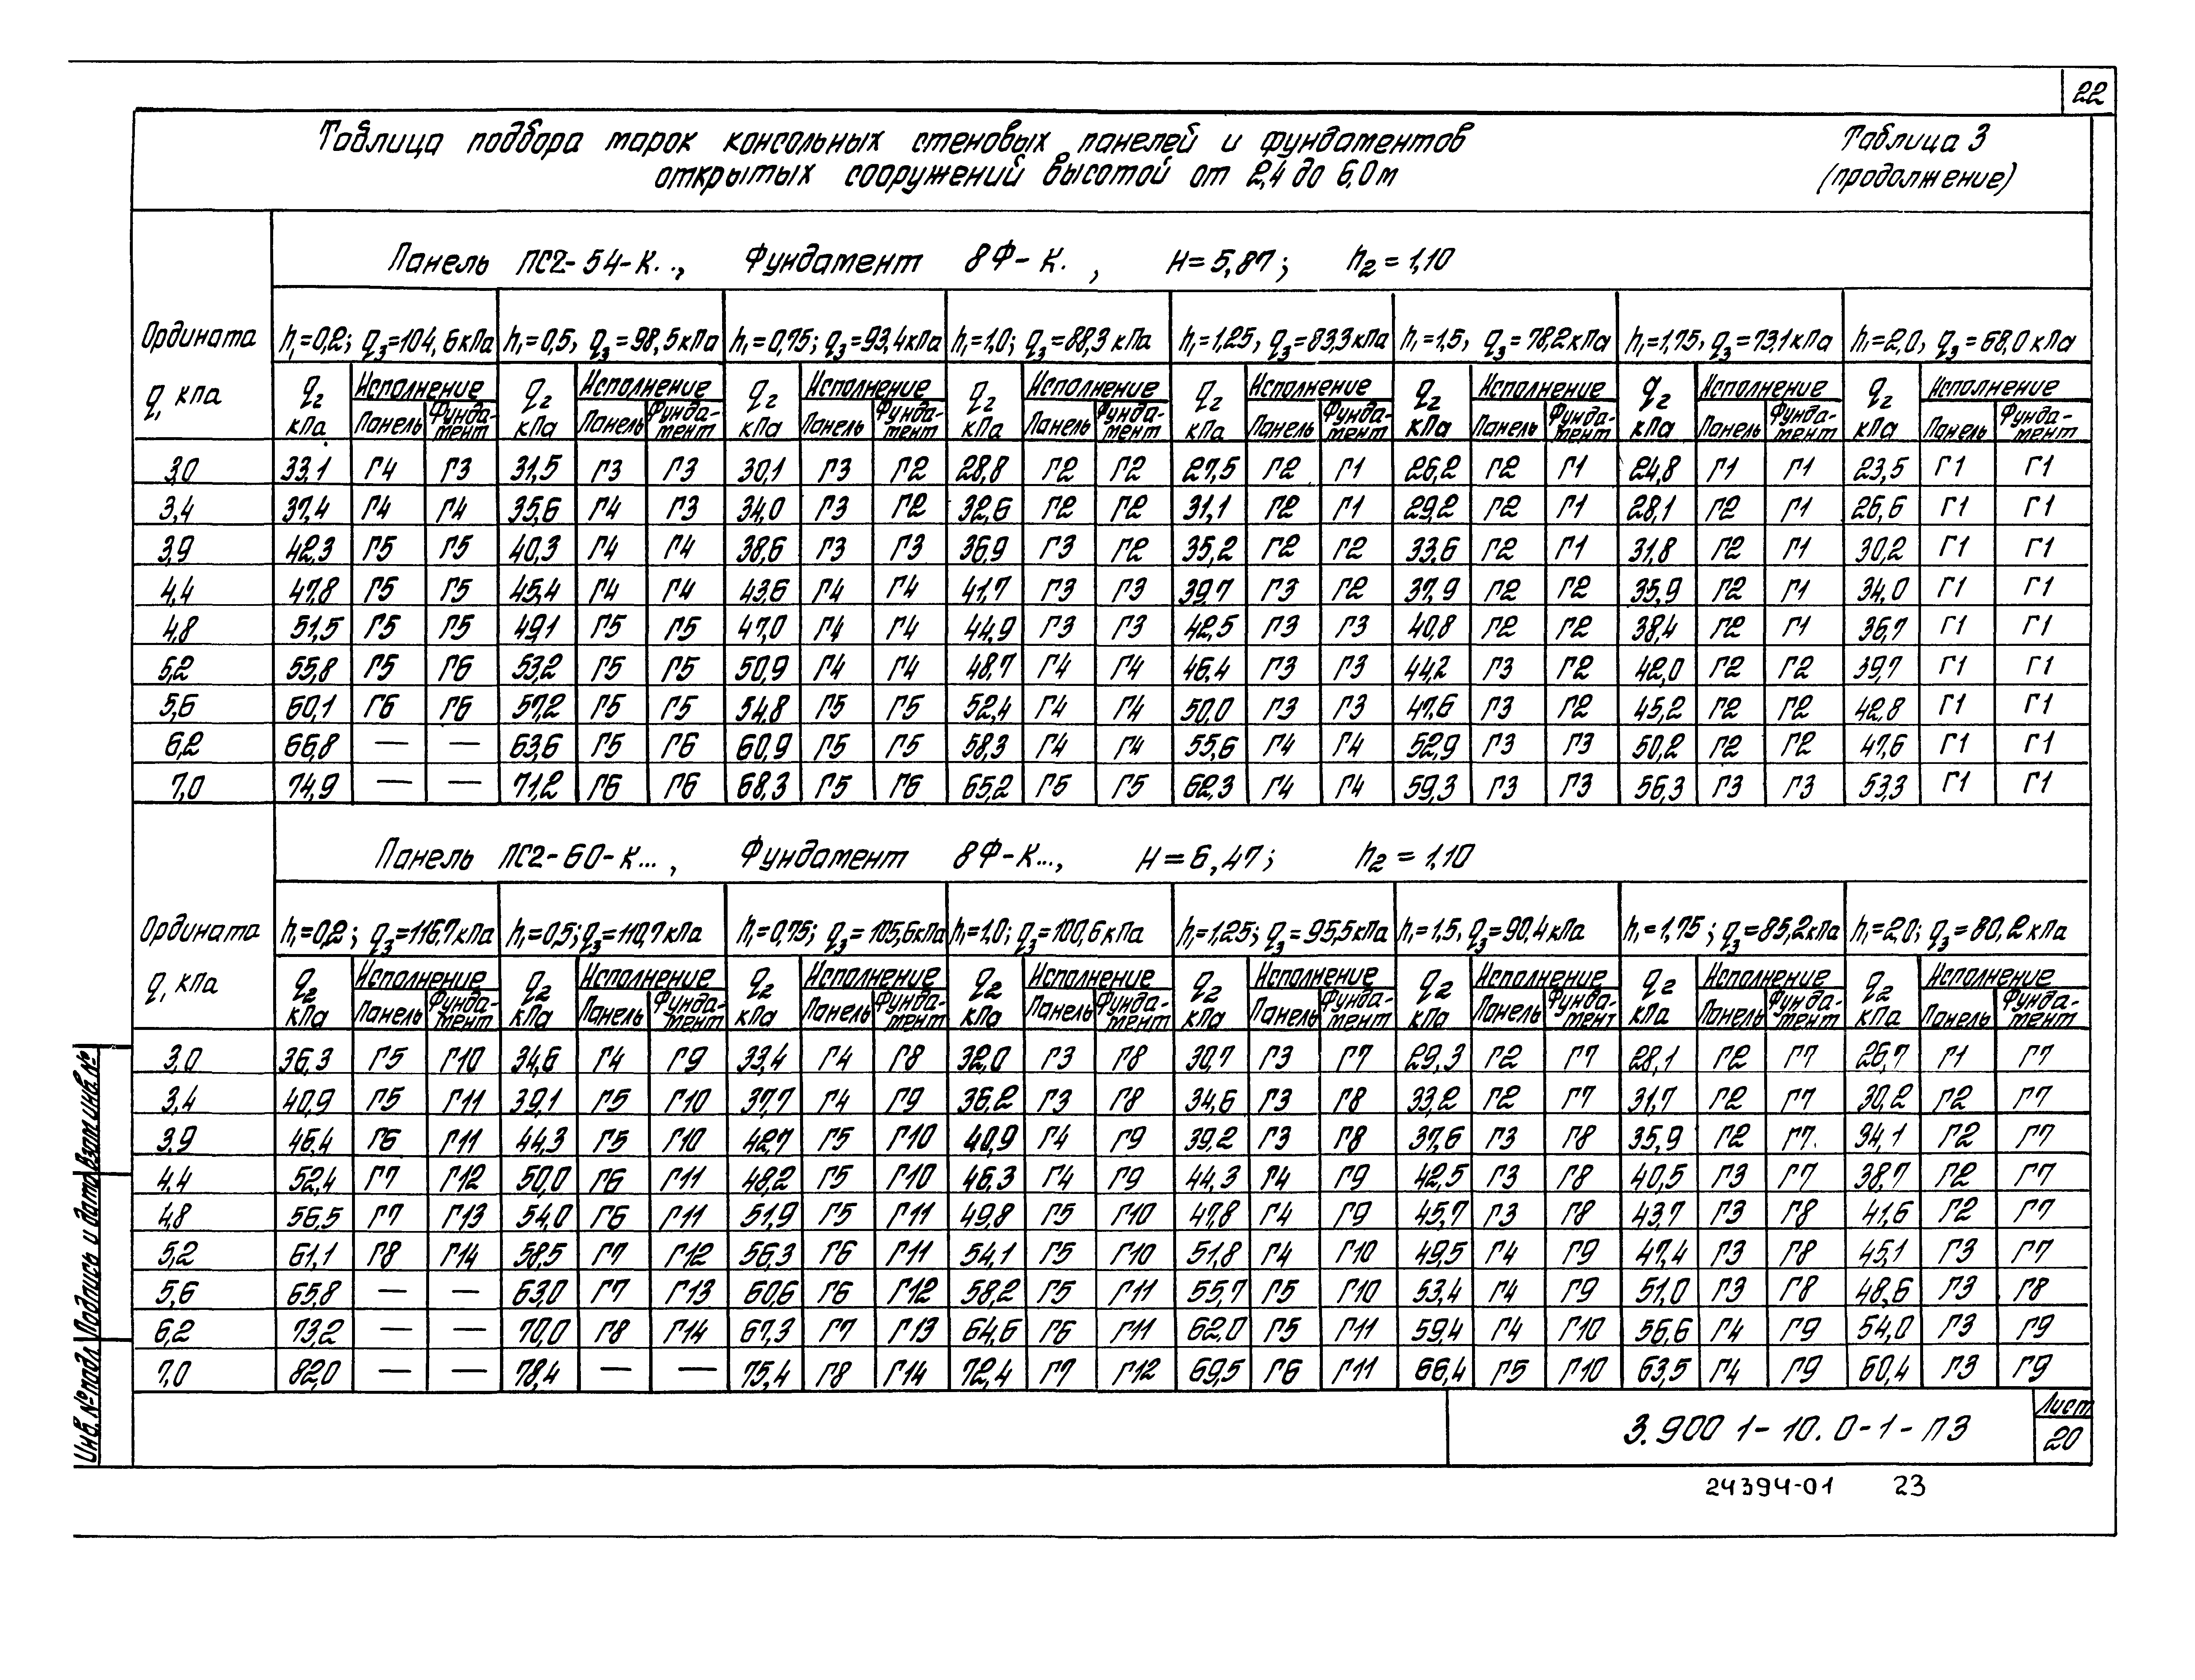 22
Таблица подбора марок консольных стеновых панелей и фундаментов
открытых сооружений высотой от 2,4 до 6,0 м
Таблица 3
(продолжение)
Панель ПС2-54-К.., Фундамент 8Ф-К. , H=5,87; h2=1,10
Ордината q1 кПа
h1=0,2; q3=104,6кПа h1=0,5, q3=98,5кПа h1=0,75; q3=93,4кПа h1=1,0; q3=88,3 кПа h1=1,25, q3=83,3кПа h1=1,5, q3=78,2кПа h1=1,75, q3=73,1кПа h1=2,0, q3=68,0 кПа
q2 кПа Исполнение Панель Фундамент q2 кПа Исполнение Панель Фундамент q2 кПа Исполнение Панель Фундамент q2 кПа Исполнение Панель Фундамент q2 кПа Исполнение Панель Фундамент q2 кПа Исполнение Панель Фундамент q2 кПа Исполнение Панель Фундамент q2 кПа Исполнение Панель Фундамент
3,0 33,1 Г4 Г3 31,5 Г3 Г3 30,1 Г3 Г2 28,8 Г2 Г2 27,5 Г2 Г1 26,2 Г2 Г1 24,8 Г1 Г1 23,5 Г1 Г1
3,4 37,4 Г4 Г4 35,6 Г4 Г3 34,0 Г3 Г2 32,6 Г2 Г2 31,1 Г2 Г1 29,2 Г2 Г1 28,1 Г2 Г1 26,6 Г1 Г1
3,9 42,3 Г5 Г5 40,3 Г4 Г4 38,6 Г3 Г3 36,9 Г3 Г2 35,2 Г2 Г2 33,6 Г2 Г1 31,8 Г2 Г1 30,2 Г1 Г1
4,4 47,8 Г5 Г5 45,4 Г4 Г4 43,6 Г4 Г4 41,7 Г3 Г3 39,7 Г3 Г2 37,9 Г2 Г2 35,9 Г2 Г1 34,0 Г1 Г1
4,8 51,5 Г5 Г5 49,1 Г5 Г5 47,0 Г4 Г4 44,9 Г3 Г3 42,5 Г3 Г3 40,8 Г2 Г2 38,4 Г2 Г1 36,7 Г1 Г1
5,2 55,8 Г5 Г6 53,2 Г5 Г5 50,9 Г4 Г4 48,7 Г4 Г4 46,4 Г3 Г3 44,2 Г3 Г2 42,0 Г2 Г2 39,7 Г1 Г1
5,6 60,1 Г6 Г6 57,2 Г5 Г5 54,8 Г5 Г5 52,4 Г4 Г4 50,0 Г3 Г3 47,6 Г3 Г2 45,2 Г2 Г2 42,8 Г1 Г1
6,2 66,8 — — 63,6 Г5 Г6 60,9 Г5 Г5 58,3 Г4 Г4 55,6 Г4 Г4 52,9 Г3 Г3 50,2 Г2 Г2 47,6 Г1 Г1
7,0 74,9 — — 71,2 Г6 Г6 68,3 Г5 Г6 65,2 Г5 Г5 62,3 Г4 Г4 59,3 Г3 Г3 56,3 Г3 Г3 53,3 Г1 Г1
Панель ПС2-60-К..., Фундамент 8Ф-К..., H=6,47; h2=1,10
Ордината q1 кПа
h1=0,2; q3=116,7кПа h1=0,5; q3=110,7кПа h1=0,75; q3=105,6кПа h1=1,0; q3=100,6кПа h1=1,25; q3=95,5кПа h1=1,5, q3=90,4кПа h1=1,75; q3=85,2кПа h1=2,0; q3=80,2кПа
q2 кПа Исполнение Панель Фундамент q2 кПа Исполнение Панель Фундамент q2 кПа Исполнение Панель Фундамент q2 кПа Исполнение Панель Фундамент q2 кПа Исполнение Панель Фундамент q2 кПа Исполнение Панель Фундамент q2 кПа Исполнение Панель Фундамент q2 кПа Исполнение Панель Фундамент
3,0 36,3 Г5 Г10 34,6 Г4 Г9 33,4 Г4 Г8 32,0 Г3 Г8 30,7 Г3 Г7 29,3 Г2 Г7 28,1 Г2 Г7 26,7 Г1 Г7
3,4 40,9 Г5 Г11 39,1 Г5 Г10 37,7 Г4 Г9 36,2 Г3 Г8 34,6 Г3 Г8 33,2 Г2 Г7 31,7 Г2 Г7 30,2 Г2 Г7
3,9 46,4 Г6 Г11 44,3 Г5 Г10 42,7 Г5 Г10 40,9 Г4 Г9 39,2 Г3 Г8 37,6 Г3 Г8 35,9 Г2 Г7 34,1 Г2 Г7
4,4 52,4 Г7 Г12 50,0 Г6 Г11 48,2 Г5 Г10 46,3 Г4 Г9 44,3 Г4 Г9 42,5 Г3 Г8 40,5 Г3 Г7 38,7 Г2 Г7
4,8 56,5 Г7 Г13 54,0 Г6 Г11 51,9 Г5 Г11 49,8 Г5 Г10 47,8 Г4 Г9 45,7 Г3 Г8 43,7 Г3 Г8 41,6 Г2 Г7
5,2 61,1 Г8 Г14 58,5 Г7 Г12 56,3 Г6 Г11 54,1 Г5 Г10 51,8 Г4 Г10 49,5 Г4 Г9 47,4 Г3 Г8 45,1 Г3 Г7
5,6 65,8 — — 63,0 Г7 Г13 60,6 Г6 Г12 58,2 Г5 Г11 55,7 Г5 Г10 53,4 Г4 Г9 51,0 Г3 Г8 48,6 Г3 Г8
6,2 73,2 — — 70,0 Г8 Г14 67,3 Г7 Г13 64,6 Г6 Г11 62,0 Г5 Г11 59,4 Г4 Г10 56,6 Г4 Г9 54,0 Г3 Г9
7,0 82,0 — — 78,4 — — 75,4 Г8 Г14 72,4 Г7 Г12 69,5 Г6 Г11 66,4 Г5 Г10 63,5 Г4 Г9 60,4 Г3 Г9
Инв. № подл. Подпись и дата Взам инв. №
3.900 1-10. 0-1-ПЗ
Лист
20
24394-01 23